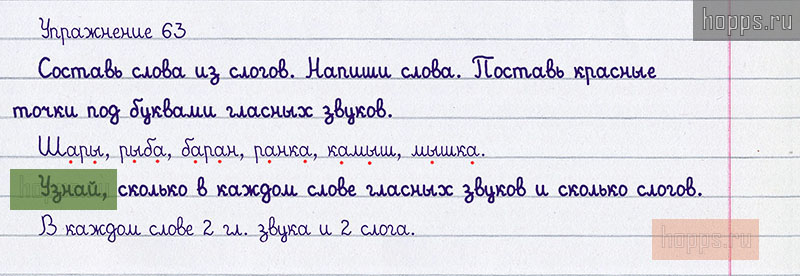 hopps.ru
Упражнение 63
Составь слова из слогов. Напиши слова. Поставь красные
точки под буквами гласных звуков.
Шары, рыба, баран, ранка, камыш, мышка.
Узнай, сколько в каждом слове гласных звуков и сколько слогов.
В каждом слове 2 гл. звука и 2 слога.
hopps.ru